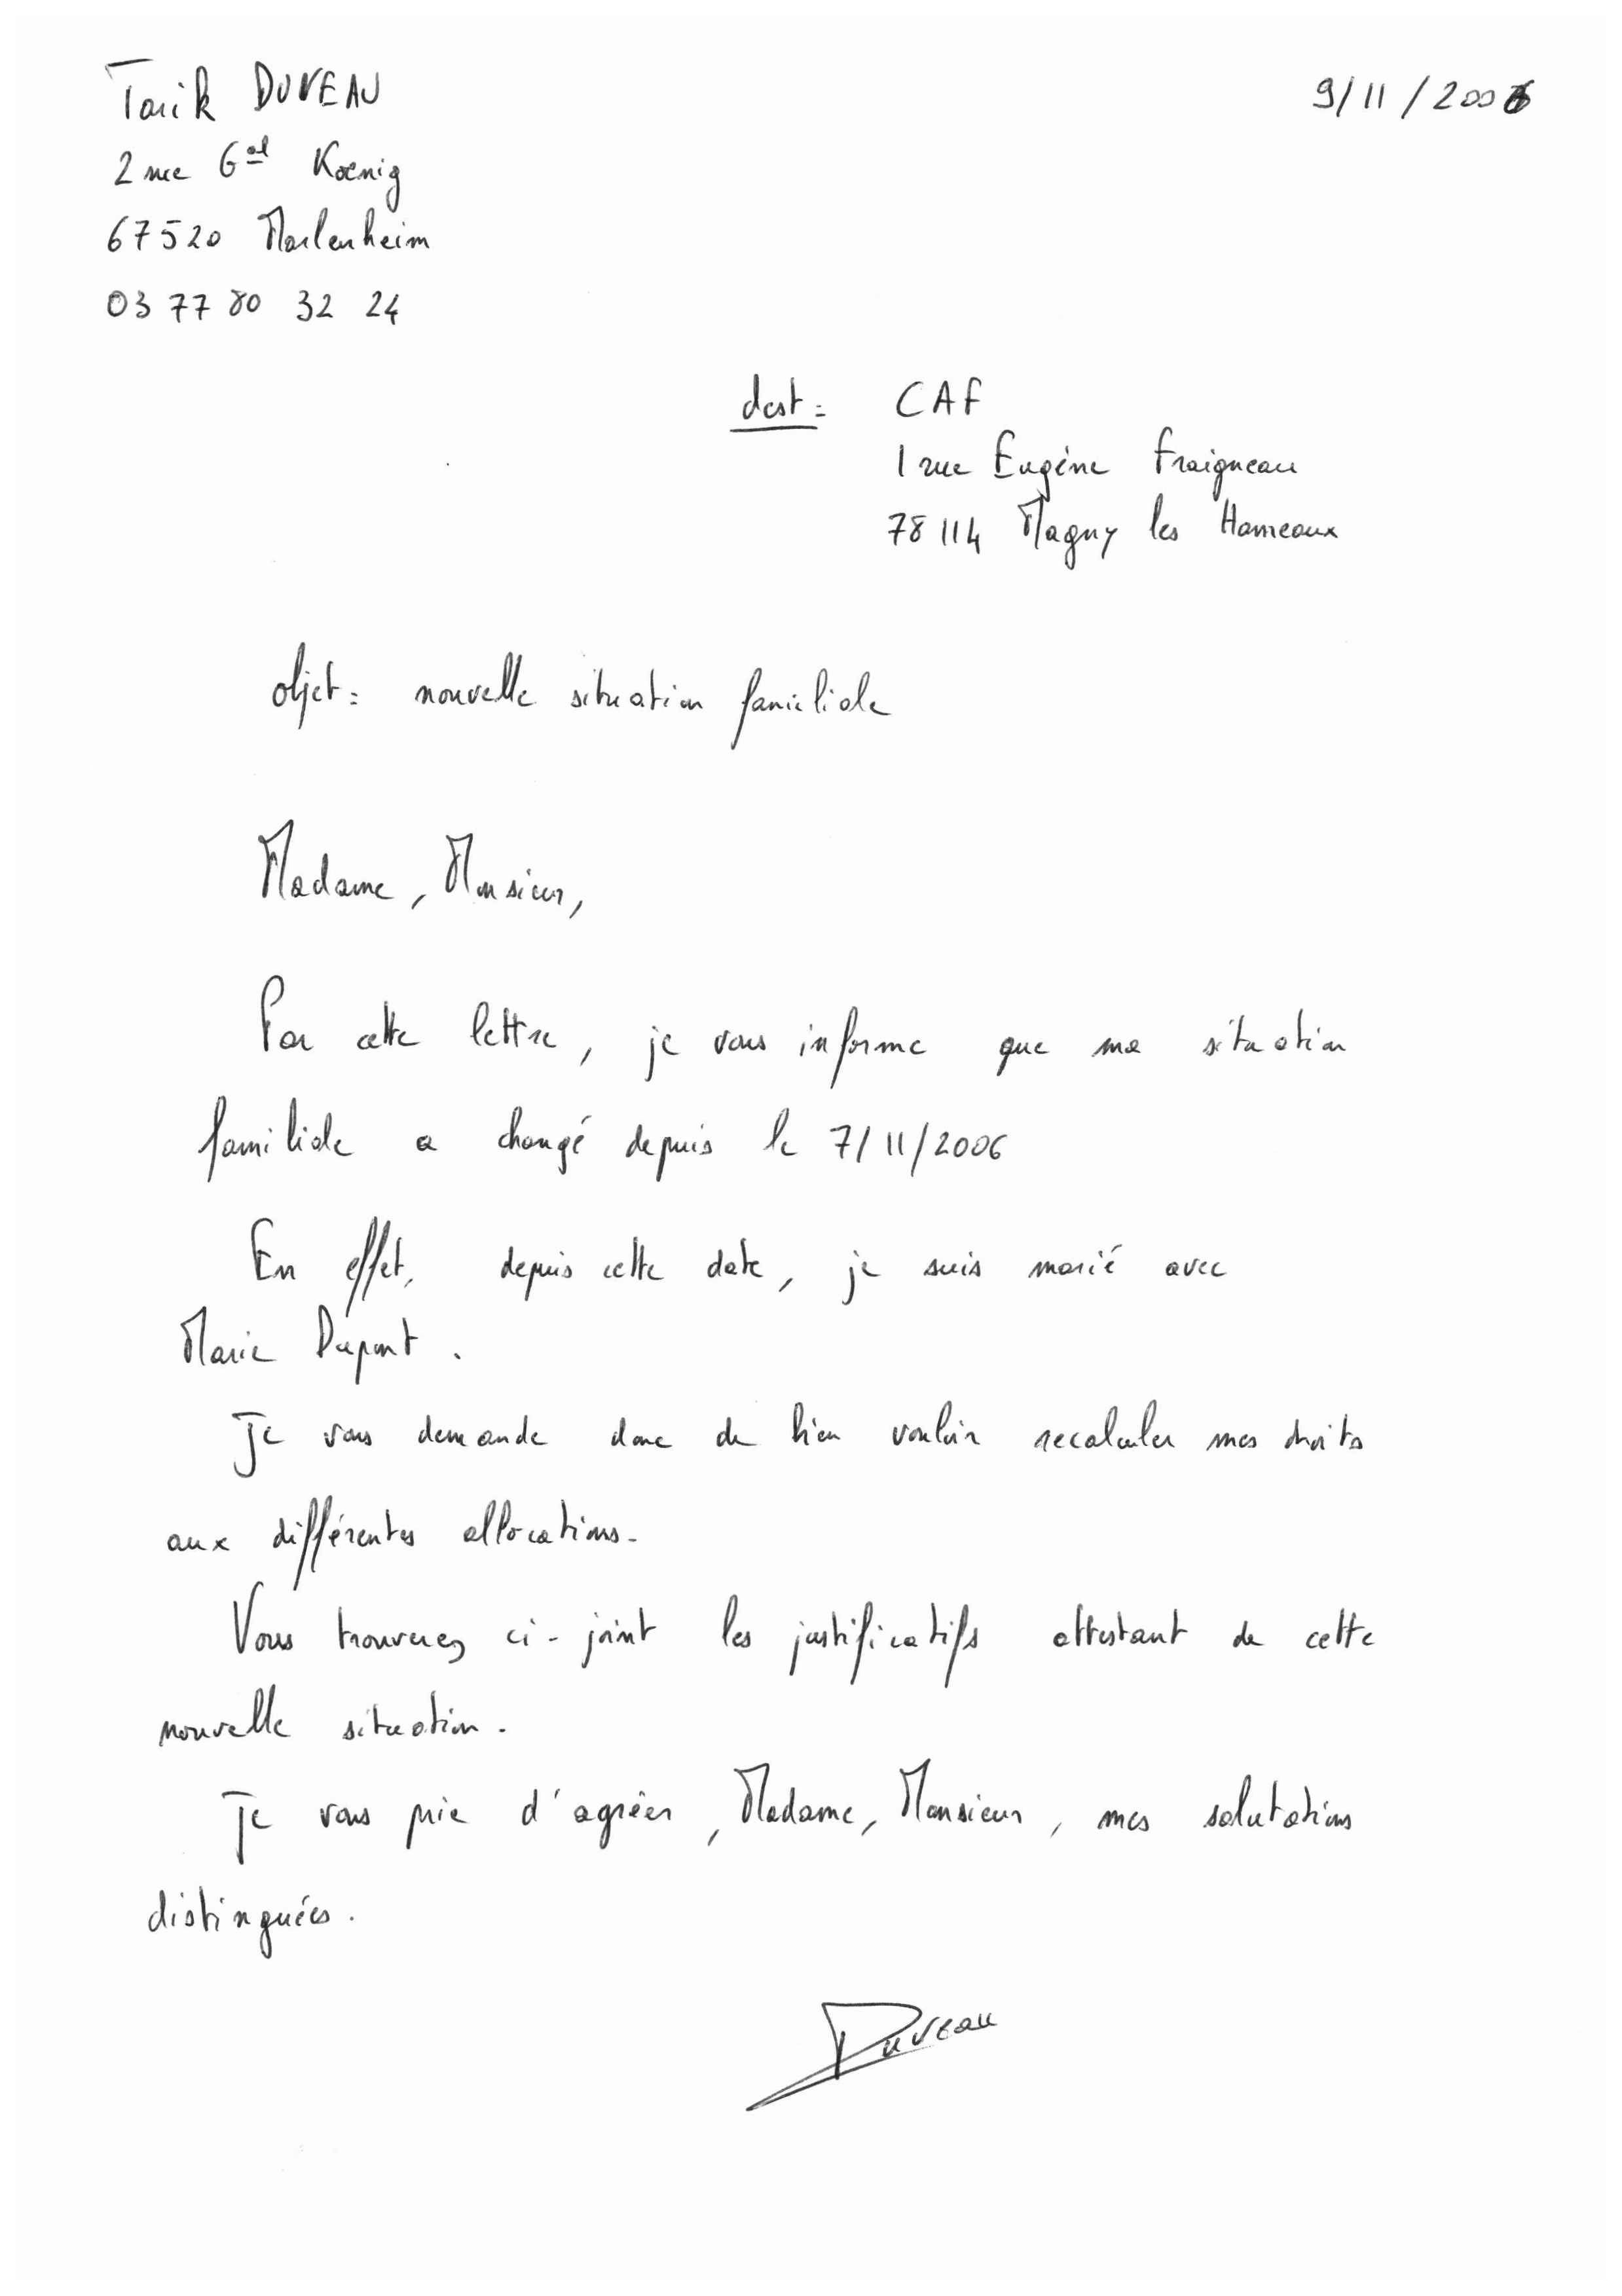 Tarik DUVEAU
9/11/2006
2 rue Gal Koenig
67520 Marlenheim
03 77 80 32 24
dest: CAF
1 rue Eugène Fraigneau
78114 Magny les Hameaux
objet: nouvelle situation familiale
Madame, Monsieur,
Par cette lettre, je vous informe que ma situation
familiale a changé depuis le 7/11/2006
En effet, depuis cette date, je suis marié avec
Marie Dupont.
Je vous demande donc de bien vouloir recalculer mes droits
aux différentes allocations.
Vous trouverez ci-joint les justificatifs attestant de cette
nouvelle situation.
Je vous prie d'agréer, Madame, Monsieur, mes salutations
distinguées.
Duveau